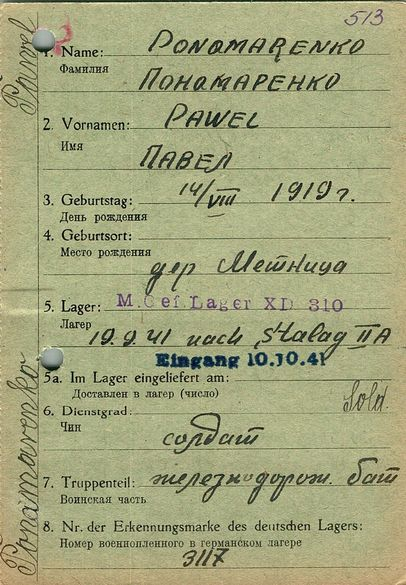 513
1. Name: PONOMARENKO
Фамилия
ПОНОМАРЕНКО
2. Vornamen: PAWEL
Имя
ПАВЕЛ
3. Geburtstag: 14/VIII 1919 г.
День рождения
4. Geburtsort:
Место рождения
дер Метница
5. Lager: M.Gef Lager XD 310
Лагерь
19.9.41 nach Stalag II A
Eingang 10.10.41
5a. Im Lager eingeliefert am:
Доставлен в лагерь (число)
6. Dienstgrad: Sold.
Чин
солдат
7. Truppenteil: железнодорож. бат
Воинская часть
8. Nr. der Erkennungsmarke des deutschen Lagers:
Номер военнопленного в германском лагере
3117
Ponomarenko
Pawel